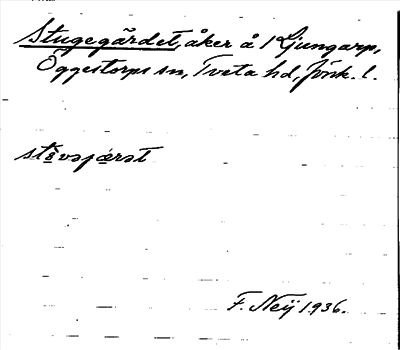 Stugegärdet, åker å 1 Ljungarp,
Öggestorps sn, Tveta hd, Jönk. l.
F. Neij 1936.